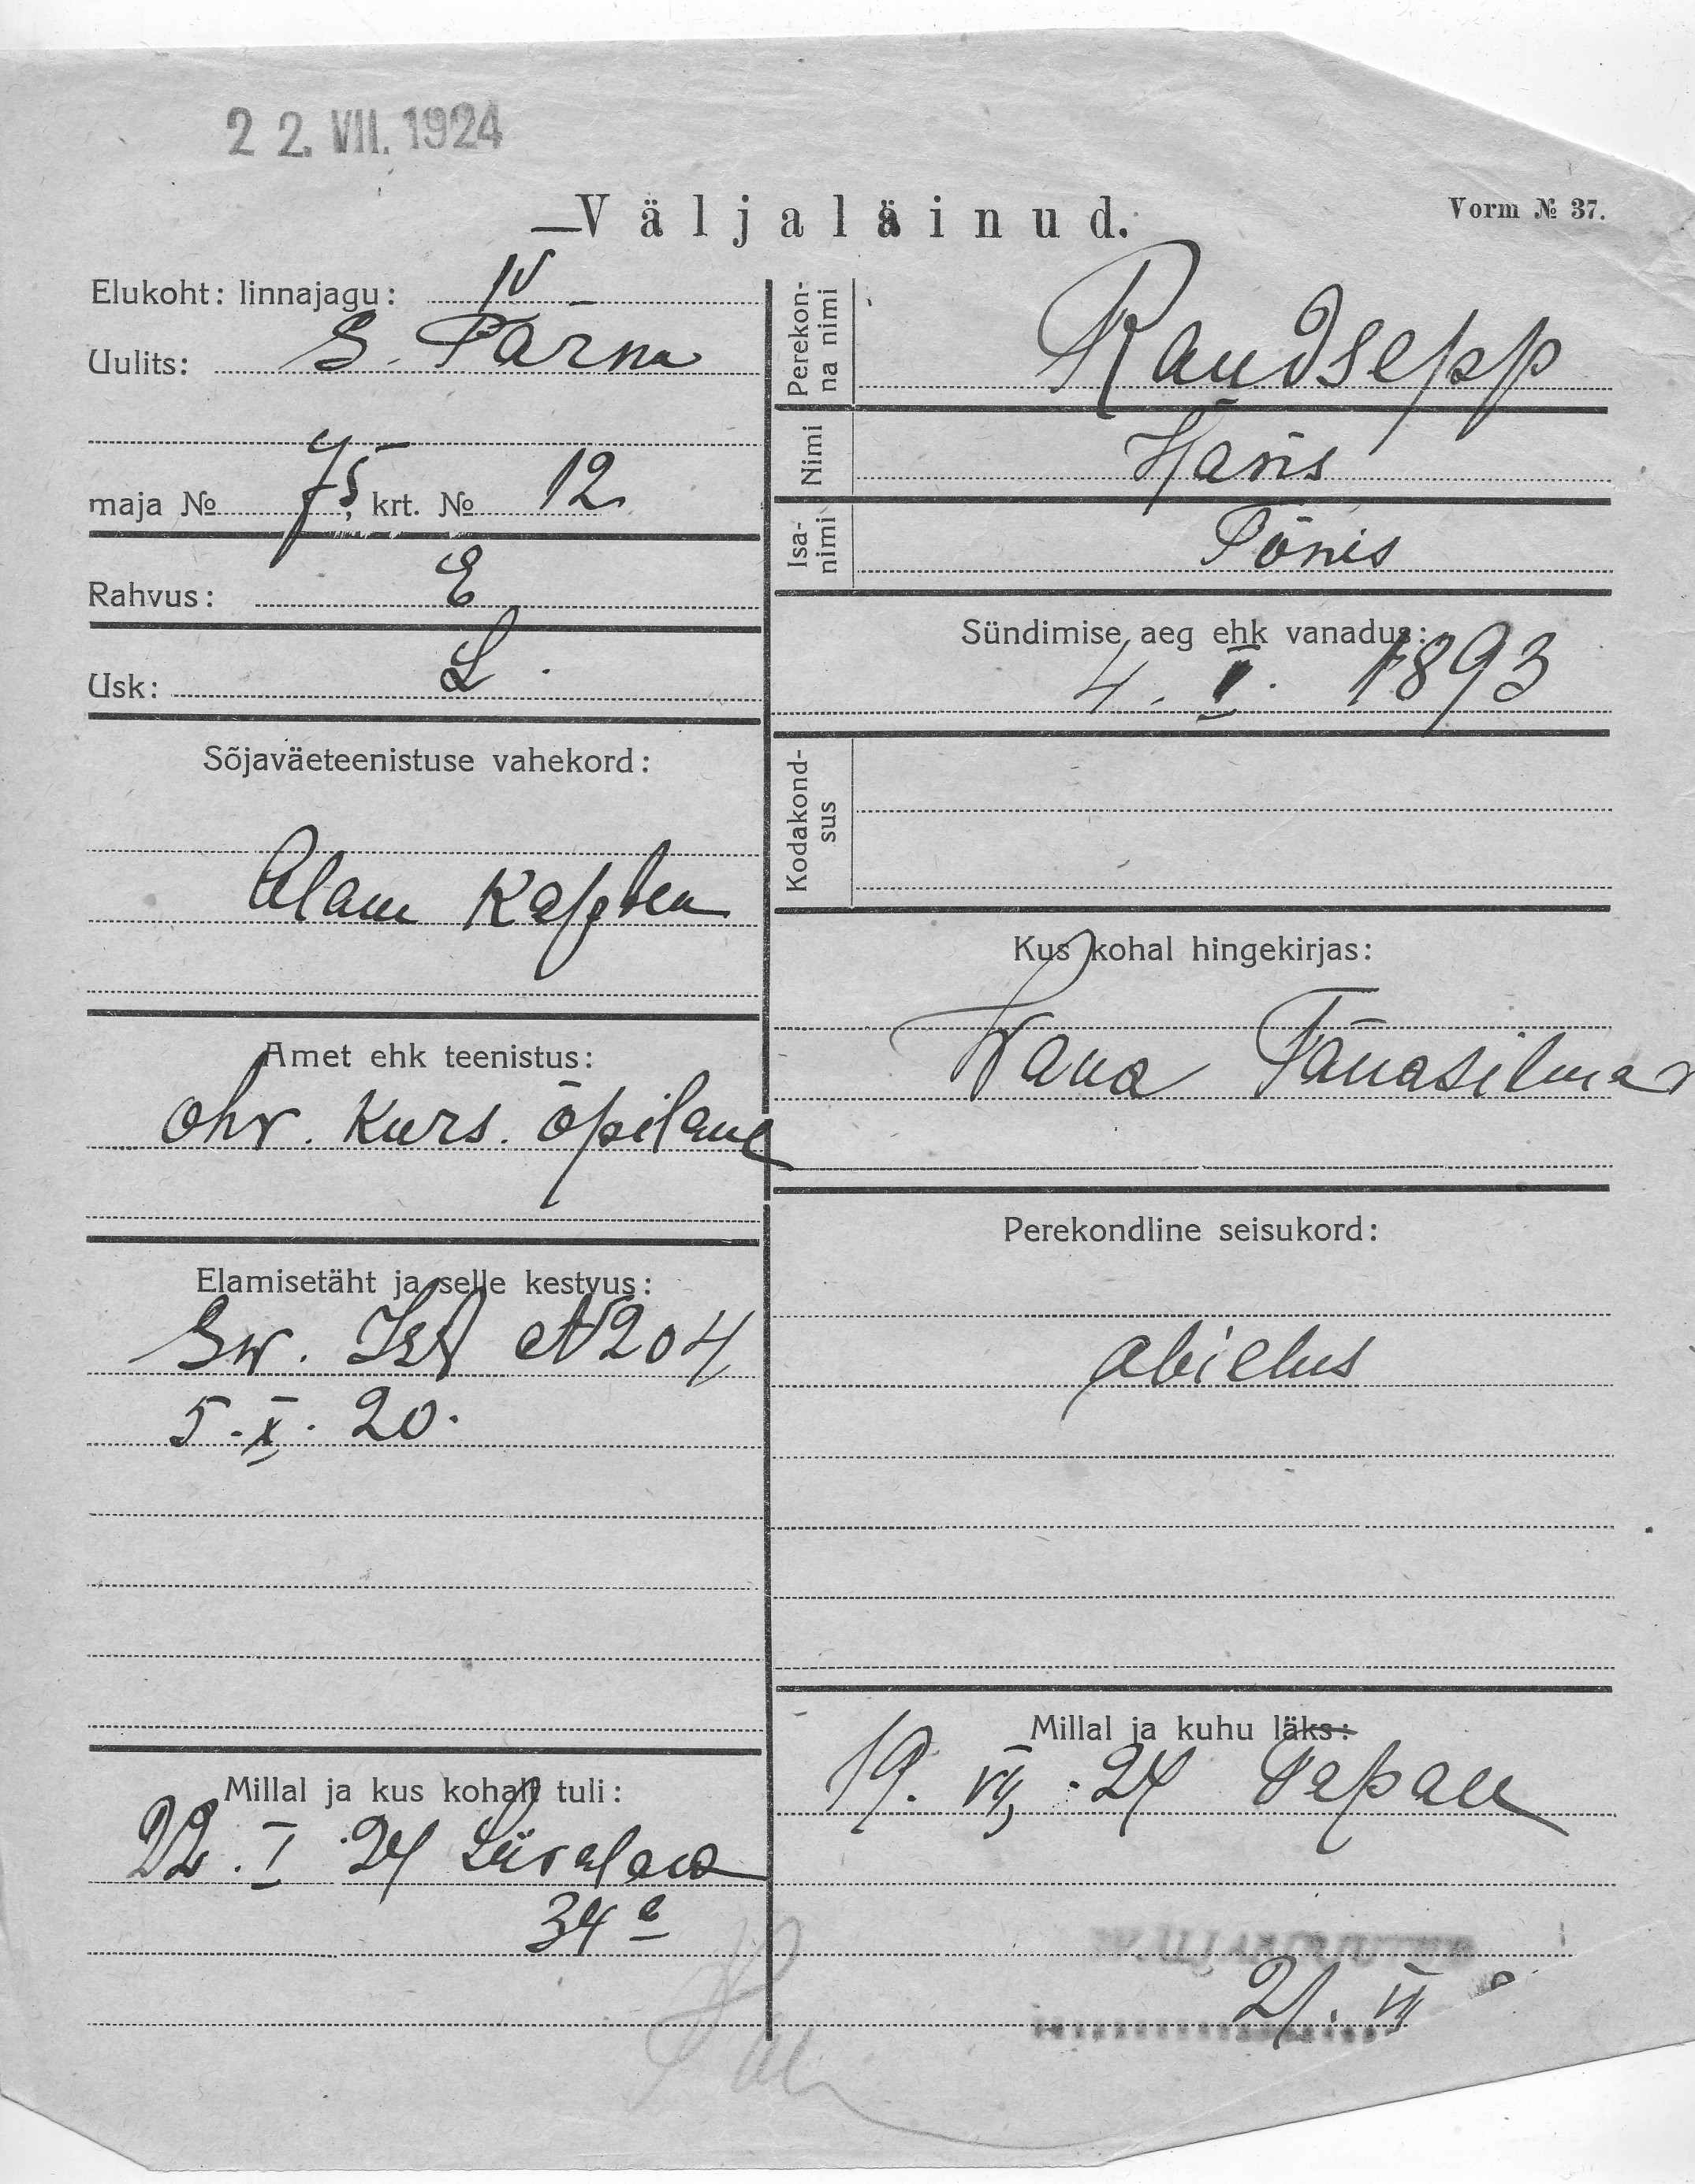 22. VII. 1924
Väljaläinud.
Vorm № 37.
Elukoht: linnajagu: IV
Uulits: S. Pärnu
maja № 75, krt. № 12
Rahvus: E
Usk: L.
Sõjaväeteenistuse vahekord:
Alam Kapten
Amet ehk teenistus:
ohv. Kurs. õpilane
Elamisetäht ja selle kestvus:
N204
5. X. 20.
Millal ja kus kohalt tuli:
22. I 24
34 a
Perekonna nimi
Raudsepp
Nimi
Hans
Isanimi
Tõnis
Sündimise aeg ehk vanadus:
4. I. 1893
Kodakondsus
Kus kohal hingekirjas:
Wana Tänasilmas
Perekondline seisukord:
abielus
Millal ja kuhu läks:
19. VII. 24 Tapale
21. VII